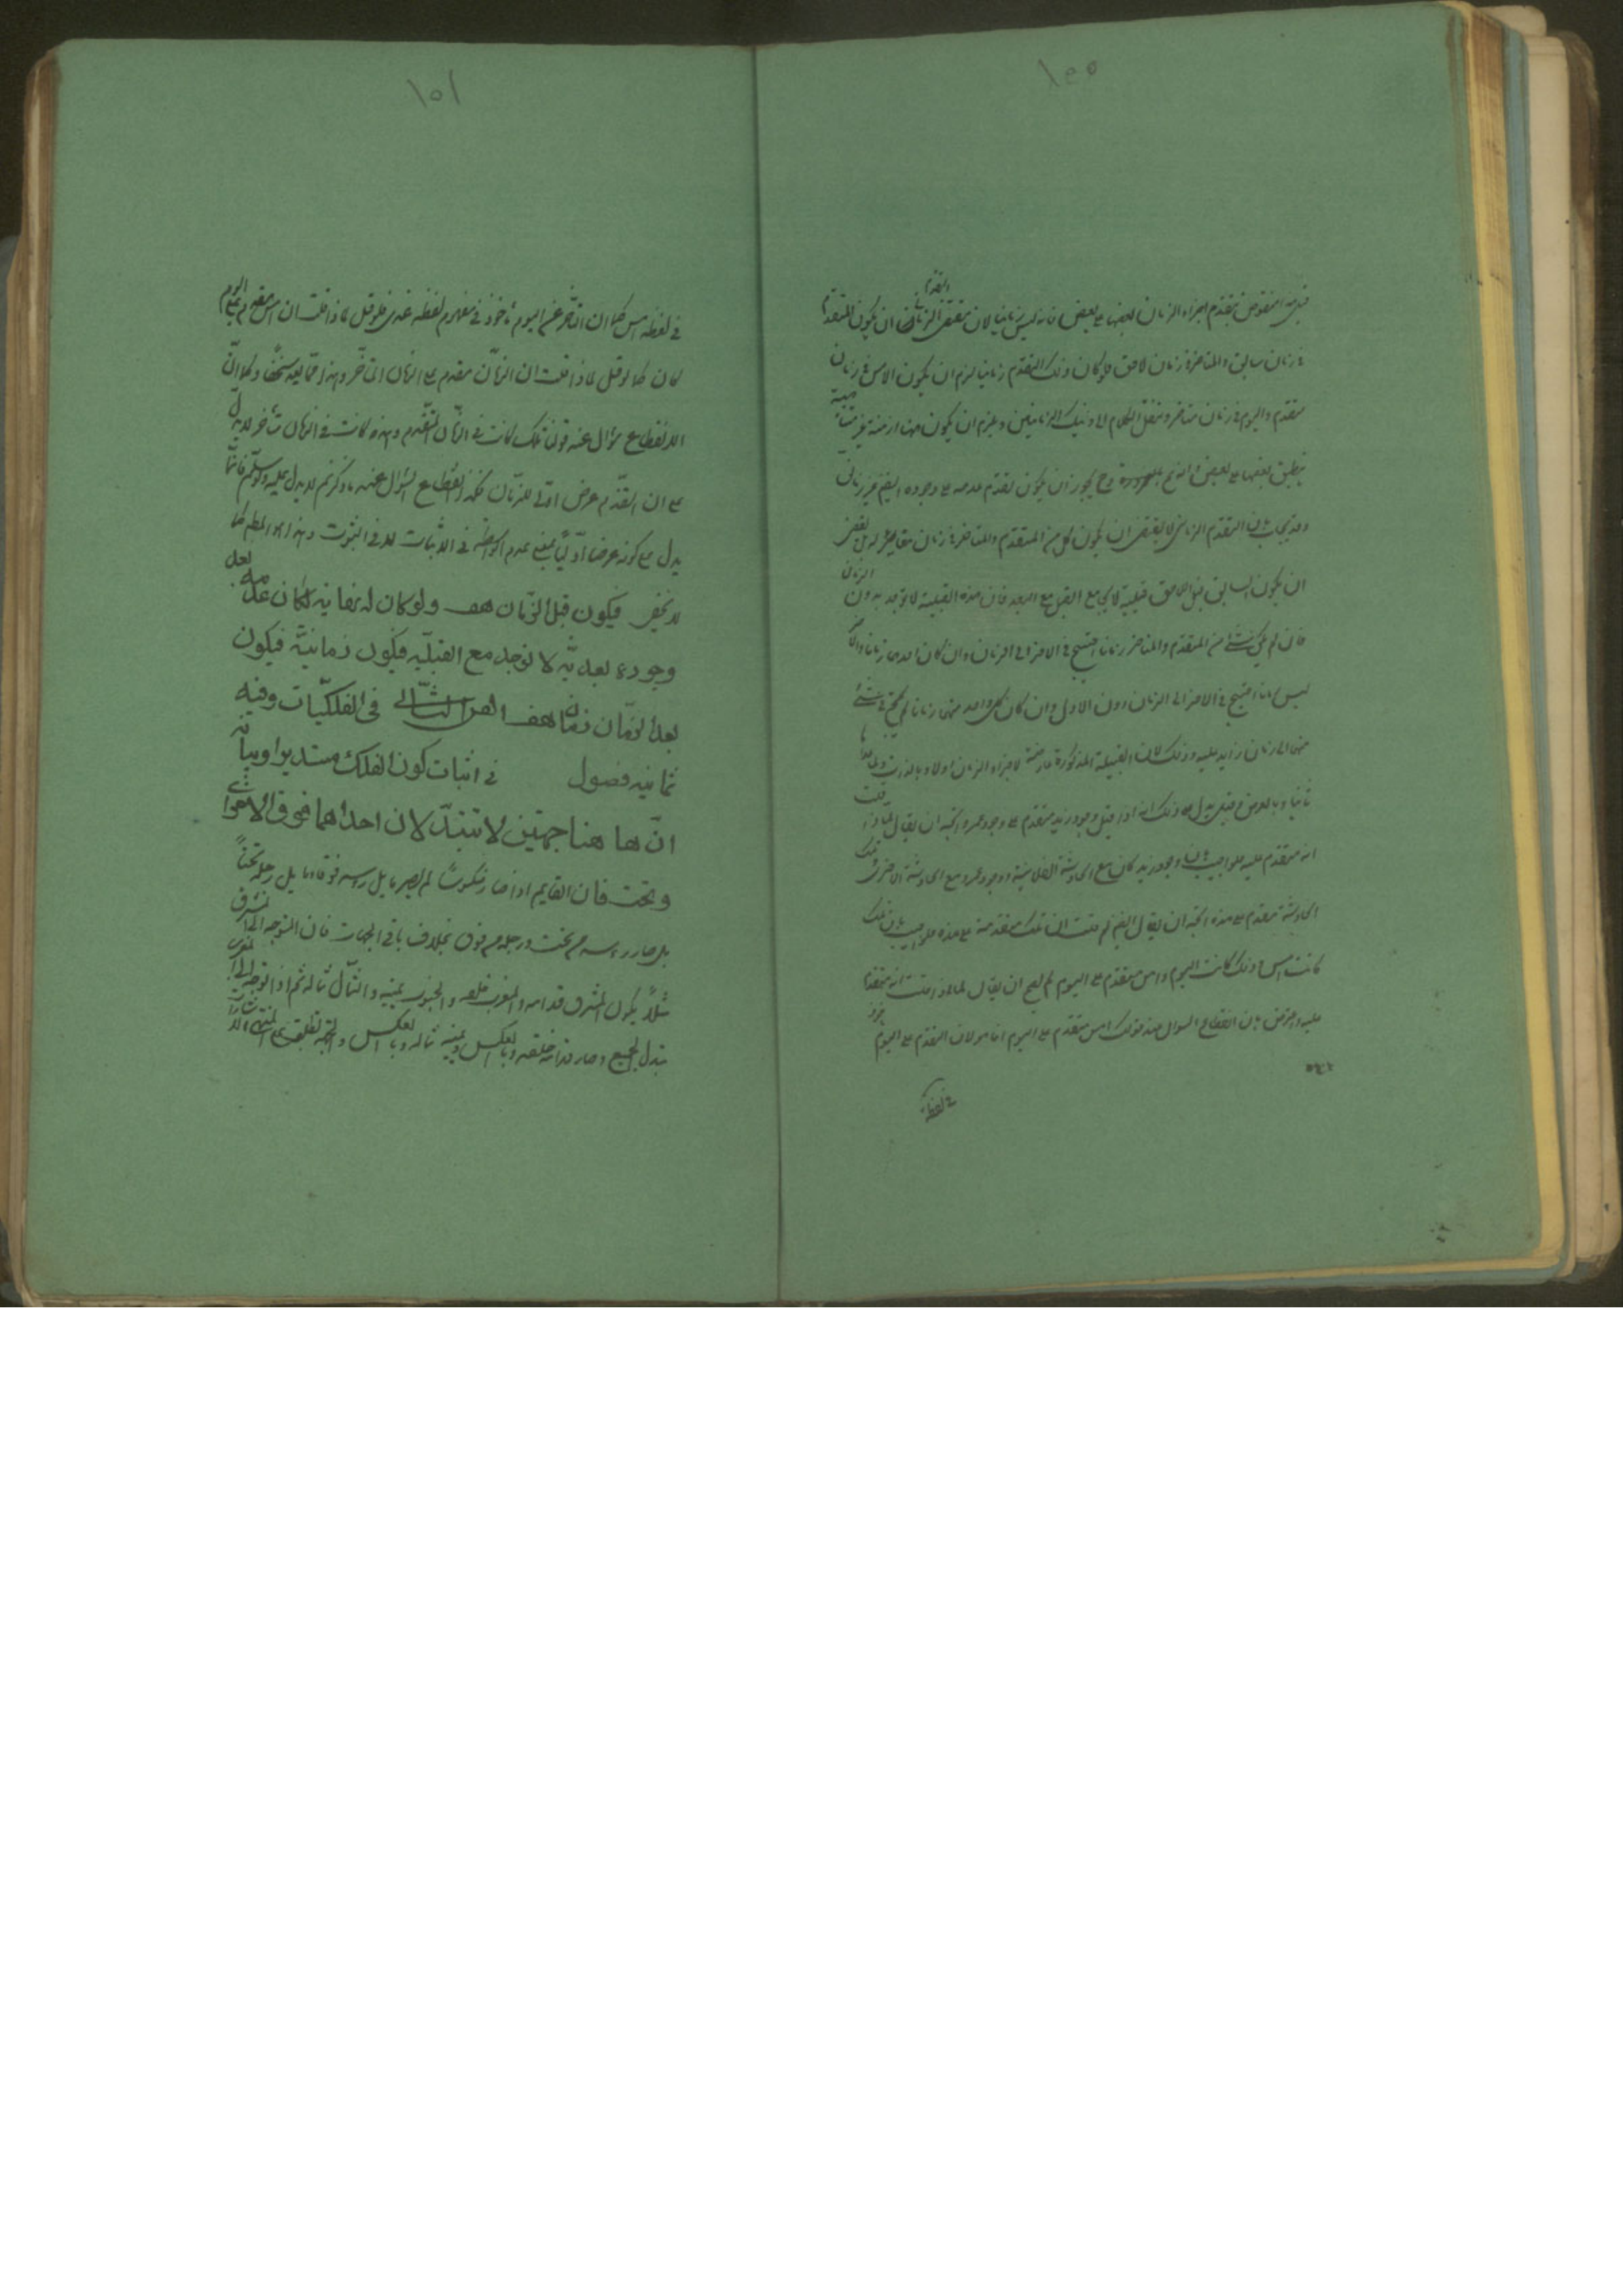 ١٥٥
قيل هذا منقوض بتقدم اجزاء الزمان بعضها على بعض فانه ليس زمانيا لان مقتضى التقدم الزماني ان يكون المتقدم
في زمان سابق والمتاخر في زمان لاحق فلو كان ذلك التقدم زمانيا لزم ان يكون الامس في زمان
متقدم واليوم في زمان متاخر وننقل الكلام الى ذينك الزمانين ويلزم ان يكون ههنا ازمنة غير متناهية
ينطبق بعضها على بعض وانه مح وح يجوز ان يكون تقدم عدمه على وجوده ايضا غير زماني
وقد يجاب بان التقدم الزماني لا يقتضي ان يكون كل من المتقدم والمتاخر في زمان مغاير له بل يقتضي
ان يكون السابق قبل اللاحق قبلية لا يجامع القبل مع البعد فان هذه القبلية لا توجد بدون الزمان
فان لم يكن شئ من المتقدم والمتاخر زمانا احتيج في الاخر الى الزمان وان كان احدهما زمانا والاخر
ليس زمانا احتيج في الاخر الى الزمان دون الاول وان كان كل واحد منهما زمانا لم يحتج في شئ
منهما الى زمان زايد عليه وذلك لان القبلية المذكورة عارضة لاجزاء الزمان اولا وبالذات ولما عداها
ثانيا وبالعرض قيل يدل على ذلك انه اذا قيل وجود زيد متقدم على وجود عمرو اتجه ان يقال لماذا قلت
انه متقدم عليه فلو اجيب بان وجود زيد كان مع الحادثة الفلانية ووجود عمرو مع الحادثة الاخرى وتلك
الحادثة متقدم على هذه اتجه ان يقال ايضا لم قلت ان تلك متقدمة على هذه فلو اجيب بان تلك
كانت امس وذلك كانت اليوم وامس متقدم على اليوم لم يصح ان يقال لماذا قلت انه متقدم
عليه واعترض بان انقطاع السوال عند قولك امس متقدم على اليوم انما هو لان التقدم على اليوم ماخوذ
في لفظة
١٥١
في لفظة امس كما ان التأخر عن اليوم مأخوذ في مفهوم لفظة غد فلو قيل لماذا قلت ان امس مقدم على اليوم
كان كما لو قيل لماذا قلت ان الزمان مقدم على الزمان المتأخر وهذا مما يعد سخيفا وكما ان
الانقطاع سؤال عند قولنا تلك كانت في الزمان المتقدم وهذه كانت في الزمان المتأخر لا يدل
على ان التقدم عرض اولي للزمان فكذا انقطاع السؤال عنه ما ذكرتم لا يدل عليه ولو سلم فانما
يدل على كونه عرضا اوليا بمعنى عدم الواسطة في الاثبات لا في الثبوت وهذا هو المطلوب كما
لا يخفى فيكون قبل الزمان هف ولو كان له نهاية لكان عدمه بعد
وجوده بعدية لا توجد مع القبلية فيكون زمانية فيكون
بعد الزمان زمان هف الفن الثانى فى الفلكيات وفيه
ثمانية فصول في اثبات كون الفلك مستديرا وبيانه
ان هاهنا جهتين لا تتبدلان احداهما فوق والاخرى
وتحت فان القايم اذا صار منكوسا لم يصر ما يلي راسه فوقا وما يلي رجله تحتا
بل صار رأسه من تحت ورجله من فوق بخلاف باقي الجهات فان المتوجه الى المشرق
مثلا يكون المشرق قدامه والمغرب خلفه والجنوب يمينه والشمال شماله ثم اذا توجه الى المغرب
تبدل الجميع وصار قدامه خلفه وبالعكس ويمينه شماله وبالعكس والجهة تطلق على منتهى الاشارة